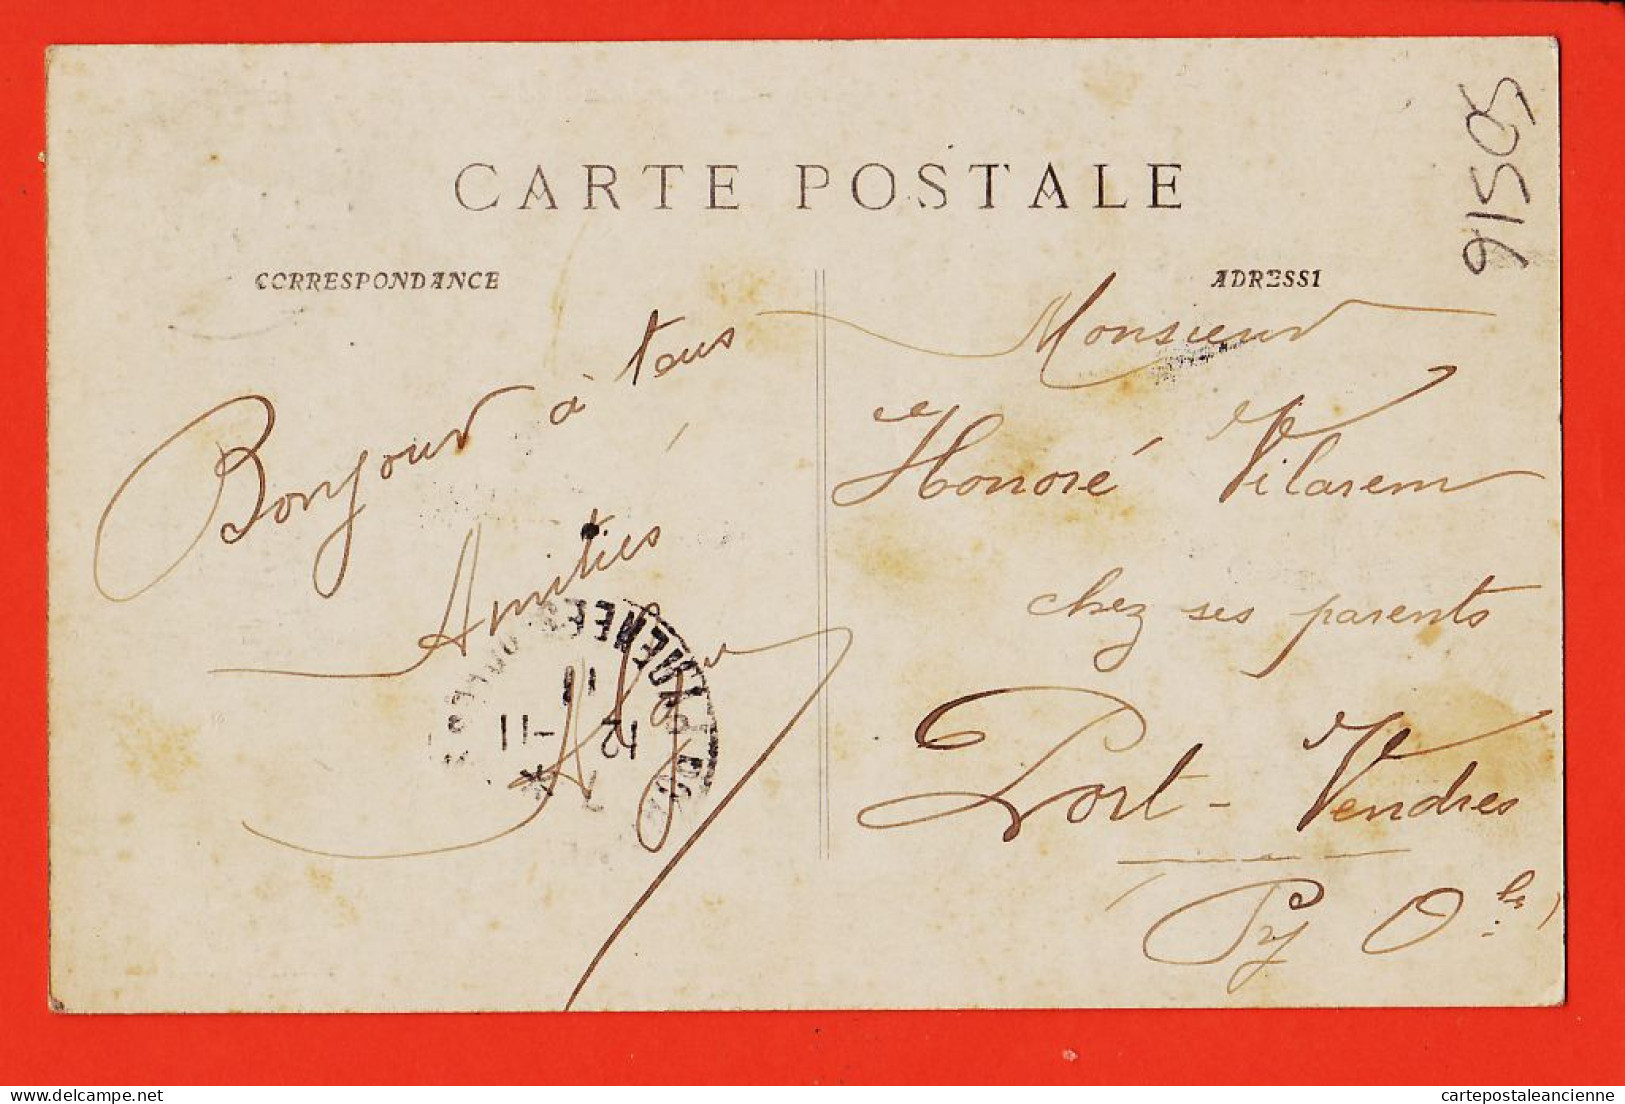 CARTE POSTALE
CORRESPONDANCE
ADRESSE
91505
Bonjour à tous
Amitiés
Monsieur
Honoré Vilarem
chez ses parents
Port-Vendres
Py Oles
12 -11
11
cartepostaleancienne